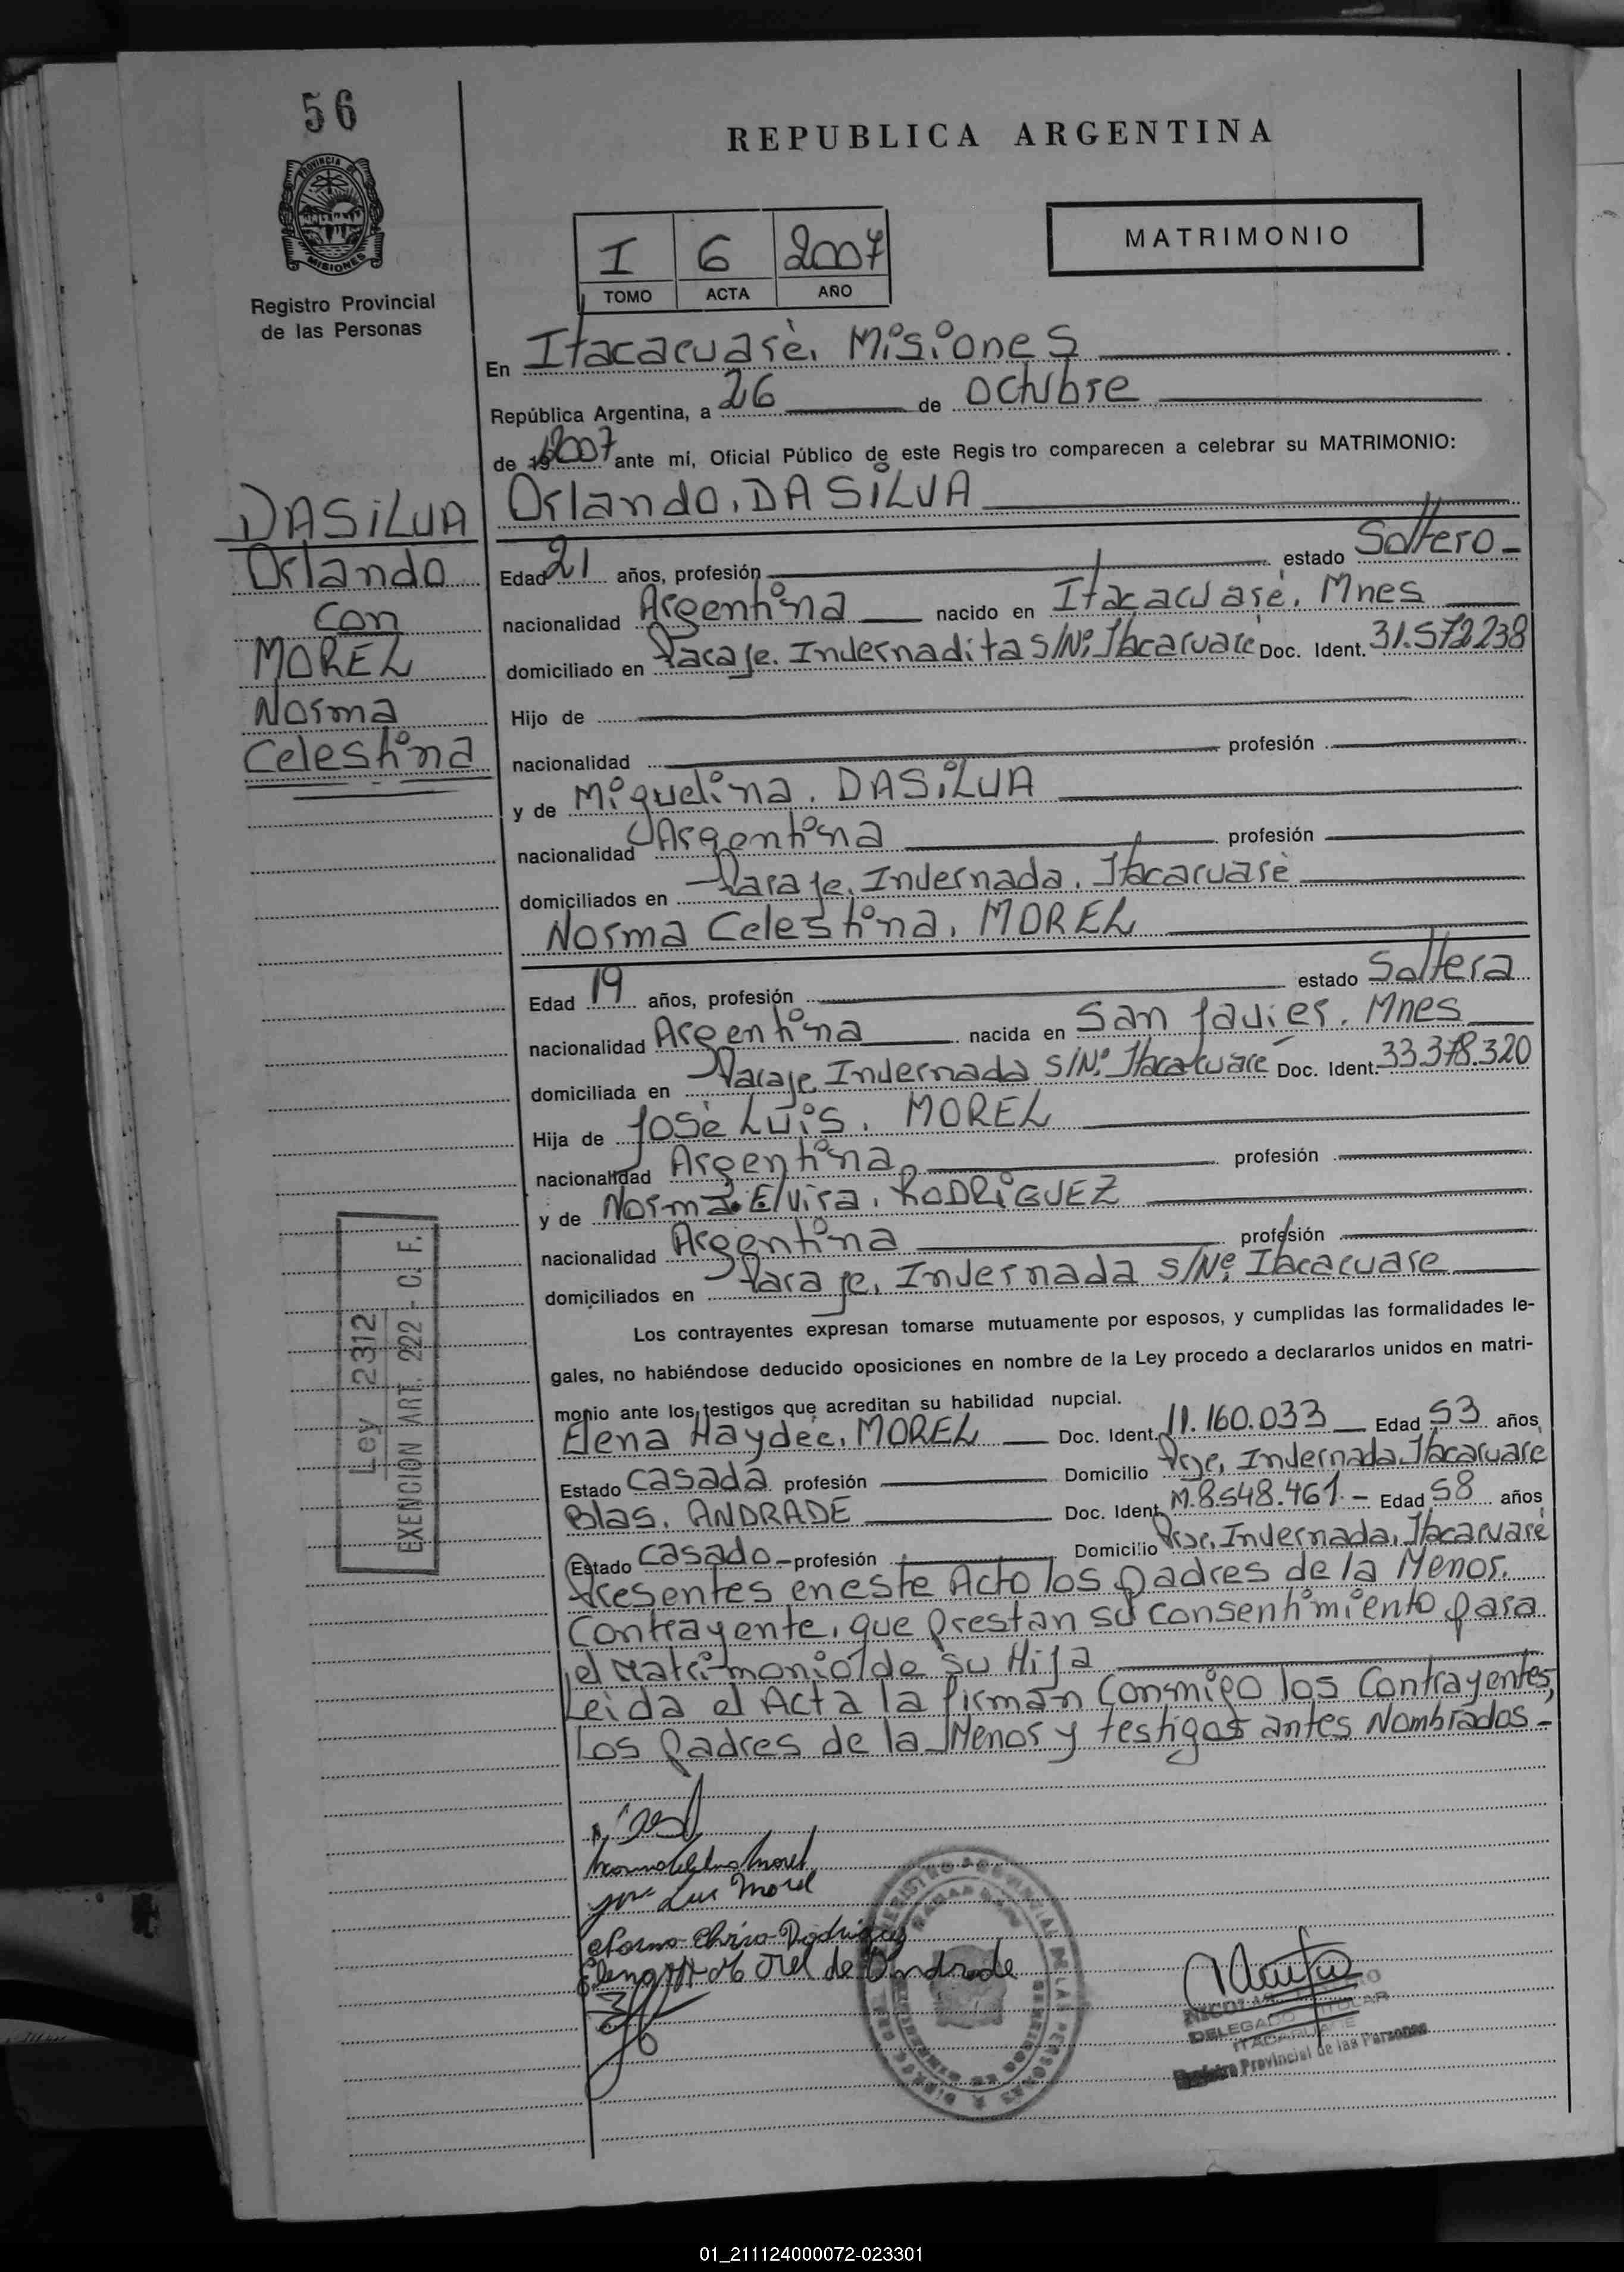 56
REPUBLICA ARGENTINA
PROVINCIA DE
MISIONES
Registro Provincial
de las Personas
I 6 2007
TOMO ACTA AÑO
MATRIMONIO
En Itacaruarè, Misiones
República Argentina, a 26 de octubre
de 19 2007 ante mí, Oficial Público de este Regis tro comparecen a celebrar su MATRIMONIO:
DASiLVA
Orlando
con
MOREL
Norma
Celestina
Orlando, DASiLVA
Edad 21 años, profesión estado Soltero
nacionalidad Argentina nacido en Itacaruarè, Mnes
domiciliado en Paraje. Invernadita S/Nº, Itacaruarè Doc. Ident. 31.572238
Hijo de
nacionalidad profesión
y de Miguelina, DASiLVA
nacionalidad Argentina profesión
domiciliados en Paraje, Invernada, Itacaruarè
Norma Celestina, MOREL
Edad 19 años, profesión estado Soltera
nacionalidad Argentina nacida en San Javier, Mnes
domiciliada en Paraje, Invernada S/Nº, Itacaruarè Doc. Ident. 33.378.320
Hija de Josè Luis, MOREL
nacionalidad Argentina profesión
y de Norma Elvira, RODRiGUEZ
nacionalidad Argentina profesión
domiciliados en Paraje, Invernada s/Nº, Itacaruare
Los contrayentes expresan tomarse mutuamente por esposos, y cumplidas las formalidades le-
gales, no habiéndose deducido oposiciones en nombre de la Ley procedo a declararlos unidos en matri-
monio ante los testigos que acreditan su habilidad nupcial.
Elena Haydeè, MOREL Doc. Ident. 11.160.033 Edad 53 años
Estado Casada profesión Domicilio Prje, Invernada, Itacaruarè
Blas, ANDRADE Doc. Ident. M.8.548.461.- Edad 58 años
Estado Casado profesión Domicilio Prje, Invernada, Itacaruarè
Presentes en este Acto los padres de la Menor.
Contrayente, que prestan su consentimiento para
el Matrimonio de su Hija
Leida el Acta la firman Conmigo los Contrayentes,
Los padres de la Menor y testigos antes Nombrados-
Ley 2312
EXENCION ART. 222 - C. F.
Norma Celestina Morel
José Luis Morel
Norma Elvira Rodriguez
Elena H. Morel de Andrade
REGISTRO PROVINCIAL DE LAS PERSONAS
DELEGADO TITULAR
ITACARUARE
Registro Provincial de las Personas
01_211124000072-023301